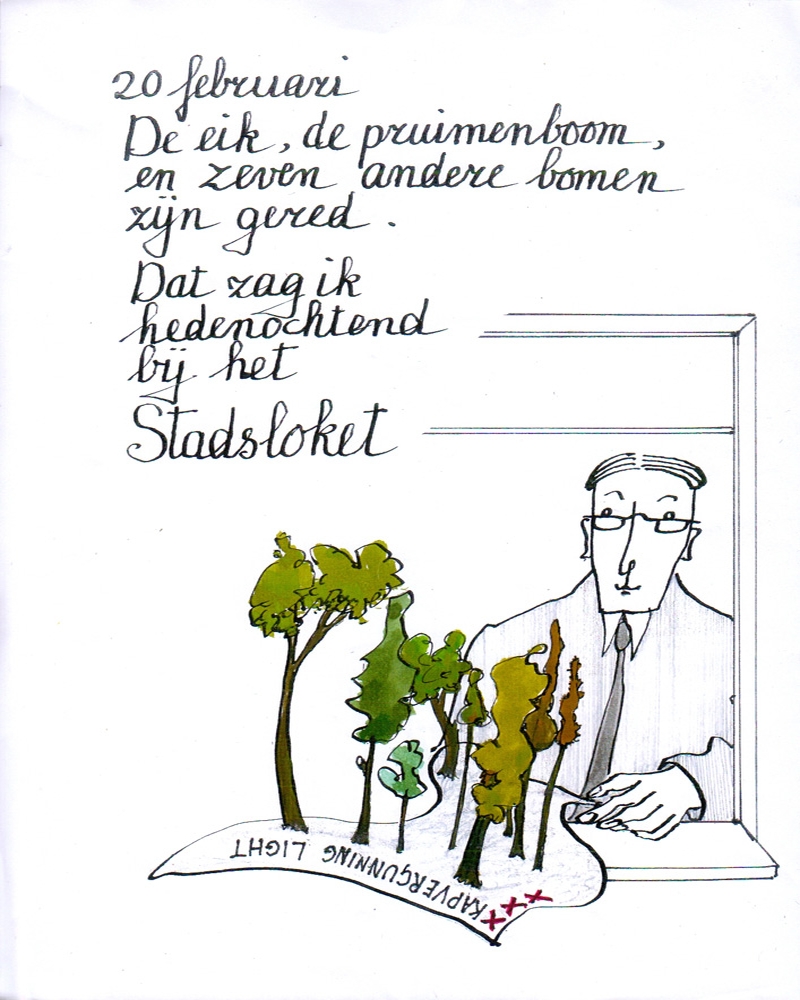 20 februari
De eik, de pruimenboom,
en zeven andere bomen
zijn gered.
Dat zag ik
hedenochtend
bij het
Stadsloket
KAPVERGUNNING LIGHT
XXX